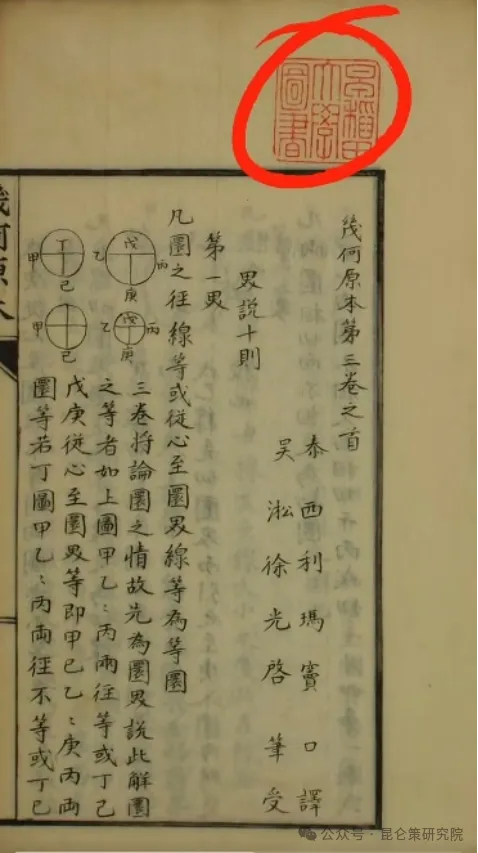 早稻田大學圖書
幾何原本第三卷之首
泰西利瑪竇口譯
吳淞徐光啓筆受
界說十則
第一界
凡圜之徑線等或從心至圜界線等為等圜
三卷將論圜之情故先為圜界說此解圜
之等者如上圖甲乙〻丙兩徑等或丁己
戊庚從心至圜界等即甲己乙〻庚丙兩
圜等若下圖甲乙〻丙兩徑不等或丁己
乙 戊 丙 庚
甲 丁 己
乙 戊 丙 庚
甲 己
幾何原本
公众号·昆仑策研究院